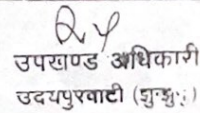 उपखण्ड अधिकारी
उदयपुरवाटी (झुन्झुः)